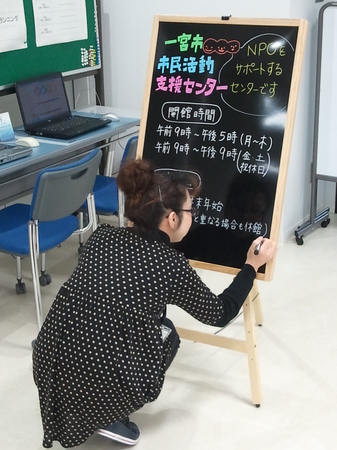 一宮市
市民活動
支援センター
NPOを
サポートする
センターです
開館時間
午前9時〜午後5時(月〜木)
午前9時〜午後9時(金・土
祝休日)
末年始
と重なる場合も休館)